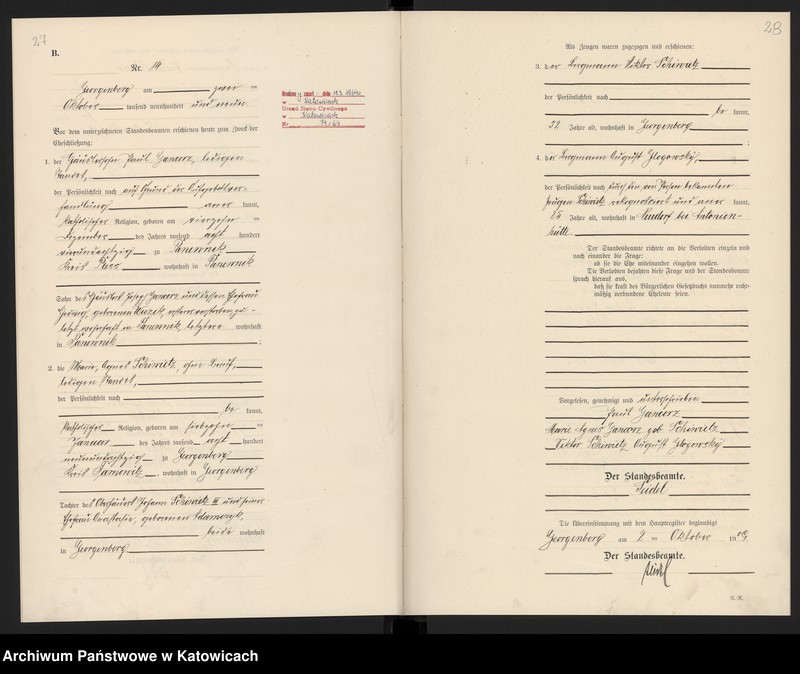 27
B.
Nr. 14
Georgenberg am zwei ten
Oktober tausend neunhundert und neun.
Vor dem unterzeichneten Standesbeamten erschienen heute zum Zweck der
Eheschließung:
1. der Häuslersohn Paul Janocz, ledigen
Standes,
der Persönlichkeit nach auf Grund der Aufgebotsver-
handlung aner kannt,
katholischer Religion, geboren am vierzehn ten
Dezember des Jahres tausend acht hundert
vierundachtzig zu Panewnik
Kreis Pless, wohnhaft in Panewnik
Sohn des Häuslers Josef Janocz und dessen Ehefrau
Hedwig, geborenen ersterer verstorben zu-
letzt wohnhaft in Panewnik, letztere wohnhaft
in Panewnik;
2. die Marie, Agnes Schiwietz, ohne Beruf,
ledigen Standes,
der Persönlichkeit nach
be kannt,
katholischer Religion, geboren am siebzehn ten
Januar des Jahres tausend acht hundert
neunundachtzig zu Georgenberg
Kreis Tarnowitz, wohnhaft in Georgenberg
Tochter des Johann Schiwietz III und seiner
Ehefrau Anastasia, geborenen Adamczyk,
beide wohnhaft
in Georgenberg
Urząd Stanu Cywilnego
w Katowicach
Nr
28
Als Zeugen waren zugezogen und erschienen:
3. der Bergmann Viktor Schiwietz
der Persönlichkeit nach
be kannt,
52 Jahre alt, wohnhaft in Georgenberg
4. der Bergmann August Glogowski,
der Persönlichkeit nach durch den von Person bekannten
Zeugen Schiwietz rekognosziert und aner kannt,
25 Jahre alt, wohnhaft in Neudorf bei Antonien-
hütte.
Der Standesbeamte richtete an die Verlobten einzeln und
nach einander die Frage:
ob sie die Ehe miteinander eingehen wollen.
Die Verlobten bejahten diese Frage und der Standesbeamte
sprach hierauf aus,
daß sie kraft des Bürgerlichen Gesetzbuchs nunmehr recht-
mäßig verbundene Eheleute seien.
Vorgelesen, genehmigt und unterschrieben
Paul Janocz
Marie Agnes Janocz geb Schiwietz
Viktor Schiwietz August Glogowski
Der Standesbeamte.
Seidel
Die Übereinstimmung mit dem Hauptregister beglaubigt
Georgenberg am 2 ten Oktober 1909.
Der Standesbeamte.
Seidel
Archiwum Państwowe w Katowicach